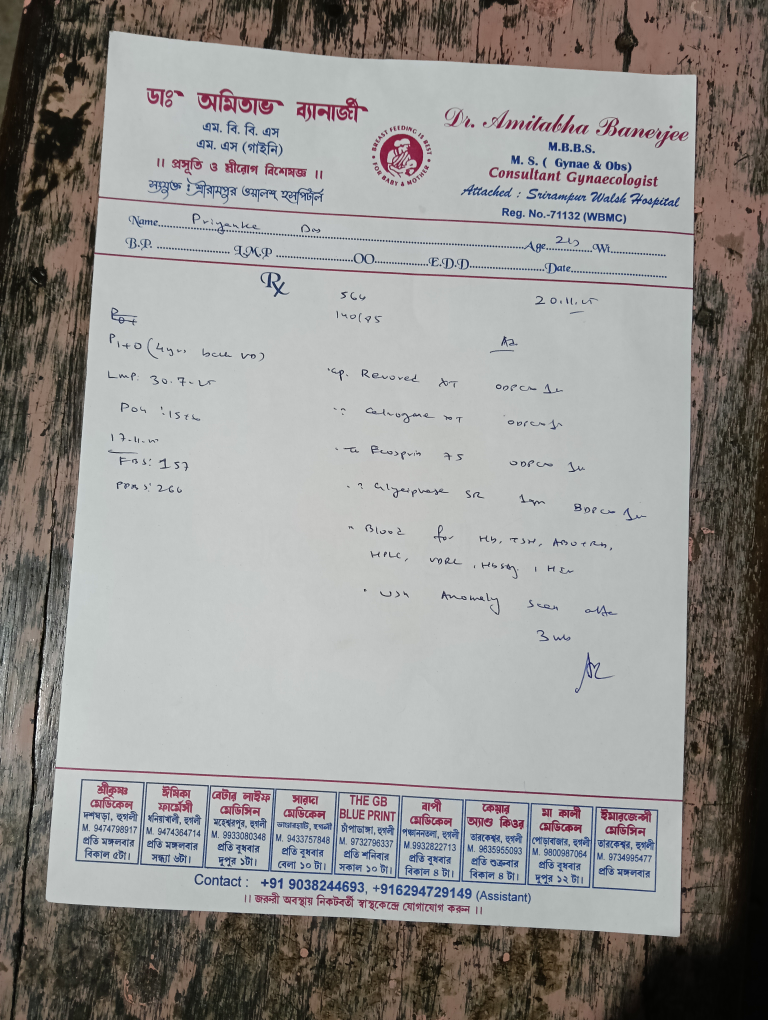 ডাঃ অমিতাভ ব্যানার্জী
এম. বি. বি. এস
এম. এস (গাইনি)
।। প্রসূতি ও স্ত্রীরোগ বিশেষজ্ঞ ।।
সংযুক্ত : শ্রীরামপুর ওয়ালশ হসপিটাল
BREAST FEEDING IS BEST FOR BABY & MOTHER
Dr. Amitabha Banerjee
M.B.B.S.
M. S. ( Gynae & Obs)
Consultant Gynaecologist
Attached : Srirampur Walsh Hospital
Reg. No.-71132 (WBMC)
Name Priyanka Das Age Wt
B.P. L.M.P OO E.D.D Date
Rx
564
140/85
20.11.25
P1+0 (4yrs back VD)
LMP: 30.7.25
POG : 15
17.11.25
FBS: 157
PPBS: 266
Cp. XT
XT
Ecosprin 75
Glyciphase SR 1gm
Blood for Hb, TSH, ABO+Rh,
HPLC, VDRL, HbsAg, HIV
USG Anomaly scan after
3 wks
শ্রীকৃষ্ণ মেডিকেল
দশঘড়া, হুগলী
M. 9474798917
প্রতি মঙ্গলবার
বিকাল ৫টা।
ঈষিকা ফার্মেসী
ধনিয়াখালী, হুগলী
M. 9474364714
প্রতি মঙ্গলবার
সন্ধ্যা ৬টা।
বেটার লাইফ মেডিসিন
মহেশ্বরপুর, হুগলী
M. 9933080348
প্রতি বুধবার
দুপুর ১টা।
সারদা মেডিকেল
হুগলী
M. 9433757848
প্রতি বুধবার
বেলা ১০ টা।
THE GB BLUE PRINT
চাঁপাডাঙ্গা, হুগলী
M. 9732796337
প্রতি শনিবার
সকাল ১০ টা।
বাপী মেডিকেল
পঞ্চাননতলা, হুগলী
M.9932822713
প্রতি বুধবার
বিকাল ৪ টা।
কেয়ার অ্যান্ড কিওর
তারকেশ্বর, হুগলী
M. 9635955093
প্রতি শুক্রবার
বিকাল ৪ টা।
মা কালী মেডিকেল
পোড়াবাজার, হুগলী
M. 9800987064
প্রতি বুধবার
দুপুর ১২ টা।
ইমারজেন্সী মেডিসিন
তারকেশ্বর, হুগলী
M. 9734995477
প্রতি মঙ্গলবার
Contact : +91 9038244693, +916294729149 (Assistant)
।। জরুরী অবস্থায় নিকটবর্তী স্বাস্থ্যকেন্দ্রে যোগাযোগ করুন ।।